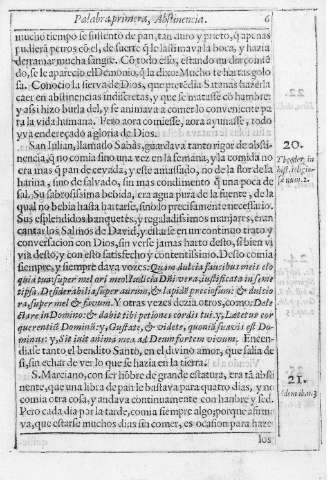 Palabra primera, Abstinencia. 6
mucho tiempo se sustentò de pan, tan duro y prieto, q̃ apenas
pudiera perros cõ el, de suerte q̃ le lastimava la boca, y hazia
derramar mucha sangre. Cõ todo esso, estando un dia comiẽ
do, se le aparecio el Demonio, q̃ la dixo: Mucho te hartas golo
sa. Conocio la sierva de Dios, que pretẽdia Satanas hazerla
caer en abstinencias indiscretas, y que se matasse cõ hambre;
y assi hizo burla del, y se animava a comer lo conveniente pa
ra la vida humana. Pero aora comiesse, aora ayunasse, todo
yva endereçado a gloria de Dios.
San Iulian, llamado Sabàs, guardava tanto rigor de absti
nencia, q̃ no comia sino una vez en la semana, y la comida no
era mas q̃ pan de cevada, y este amassado, no de la flor de la
harina, sino de Salvado, sin mas condimento q̃ una poca de
sal. Su sabrosissima bebida, era agua pura de la fuente, de la
qual no bebia hasta hartarse, sino lo precisamente necessario.
Sus esplendidos banquetes, y regaladissimos manjares, eran
cantar los Salmos de David, y estarse en un continuo trato y
conversacion con Dios, sin verse jamas harto desto, si bien vi
via desto, y con esto satisfecho y contentissimo. Desto comia
siempre, y siempre dava vozes: Quam dulcia faucibus meis elo
quia tua: super mel ori meo! Iudicia Dñi vera, iustificata in seme
tipsa. Desiderabilia super aurum, & lapidẽ preciosum: & dulcio
ra, super mel & favum. Y otras vezes dezia otros, como: Dele
ctare in Domino: & dabit tibi petiones cordis tui: y, Lætetur cor
querentiũ Dominũ: y, Gustate, & videte, quoniã suavis est Do
minus: y, Sit iuit anima mea ad Deum fortem vivum. Encen
diase tanto el bendito Santo, en el divino amor, que salia de
si, sin echar de ver lo que se hazia en la tierra.
S. Marciano, con ser hõbre de grande estatura, era tã absti
nente, que una libra de pan le bastava para quatro dias, y no
comia otra cosa, y andava continuamente con hanbre y sed.
Pero cada dia por la tarde, comia siempre algo; porque afirma
va, que estarse muchos dias sin comer, es ocasion para haze
los
20.
Theodor. in
hist. religio-
sa num. 2.
21.
Idem ibi n. 3